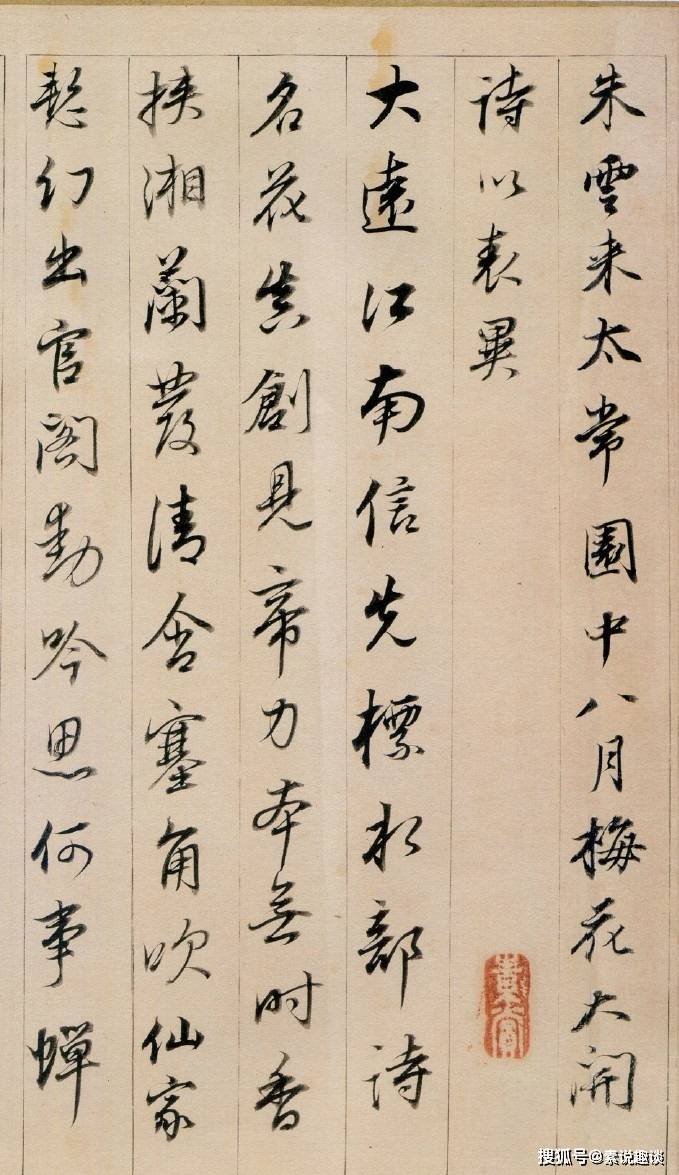 朱雲来太常園中八月梅花大開
詩以表異
大遠江南信先標水部詩
名花真創見帝力本無时香
挾湘蘭發清含塞角吹仙家
幻出官阁動吟思何事蝉
搜狐号@素说趣谈